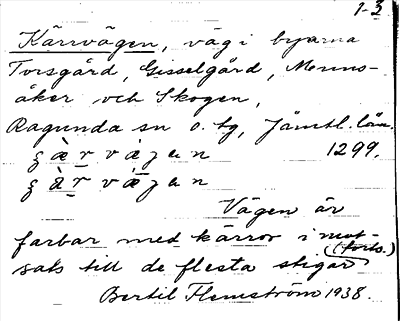 1-3
Kärrvägen, väg i byarna
Torsgård, Gisselgård, Munns-
åker och Skogen,
Ragunda sn o. tg, Jämtl. län.
1299.
Vägen är
farbar med kärror i mot-
(forts.)
sats till de flesta stigar
Bertil Flemström 1938.